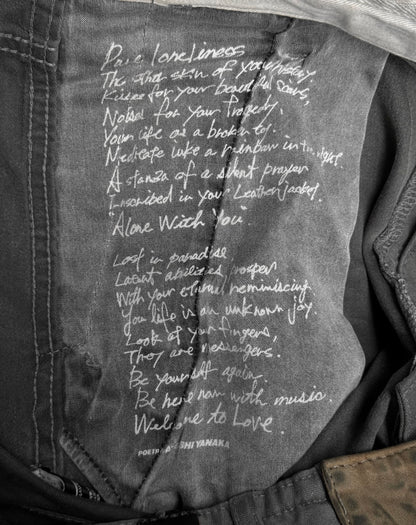 Pure loneliness
The skin of your
Kisses for your beautiful scars,
Nobel for your Tragedy,
Your life as a broken toy.
Meditate like a rainbow in the night
A stanza of a silent prayer
Inscribed in your Leather Jacket.
"Alone With You".
Lost in paradise
Latent abilities prosper
With your eternal reminiscing
You life is an unknown joy.
Look at your fingers,
They are messengers.
Be yourself again.
Be here now with music.
Welcome to Love.
POETRY